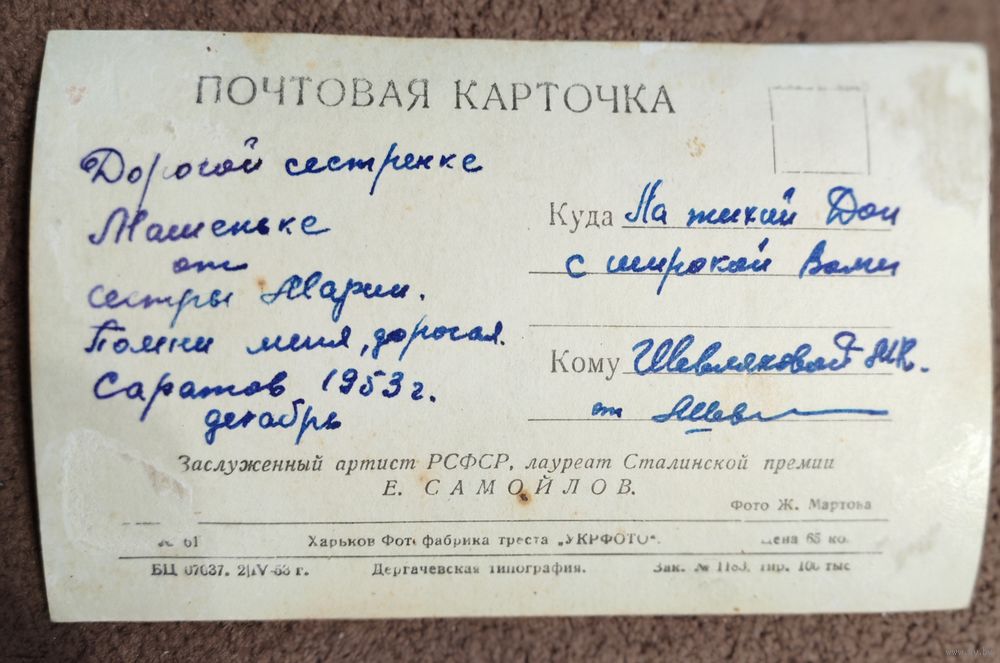 ПОЧТОВАЯ КАРТОЧКА
Дорогой сестренке
Машеньке
от
сестры Марии.
Помни меня, дорогая.
Саратов 1953 г.
декабрь
Куда На тихий Дон
с широкой Волги
Кому Шевляковой М.К.
от МШев
Заслуженный артист РСФСР, лауреат Сталинской премии
Е. САМОЙЛОВ.
Фото Ж. Мартова
61 Харьков Фотофабрика треста „УКРФОТО“. Цена 65 ко
БЦ 07037. 2|IV-53 г. Дергачевская типография. Зак. № тир. 100 тыс